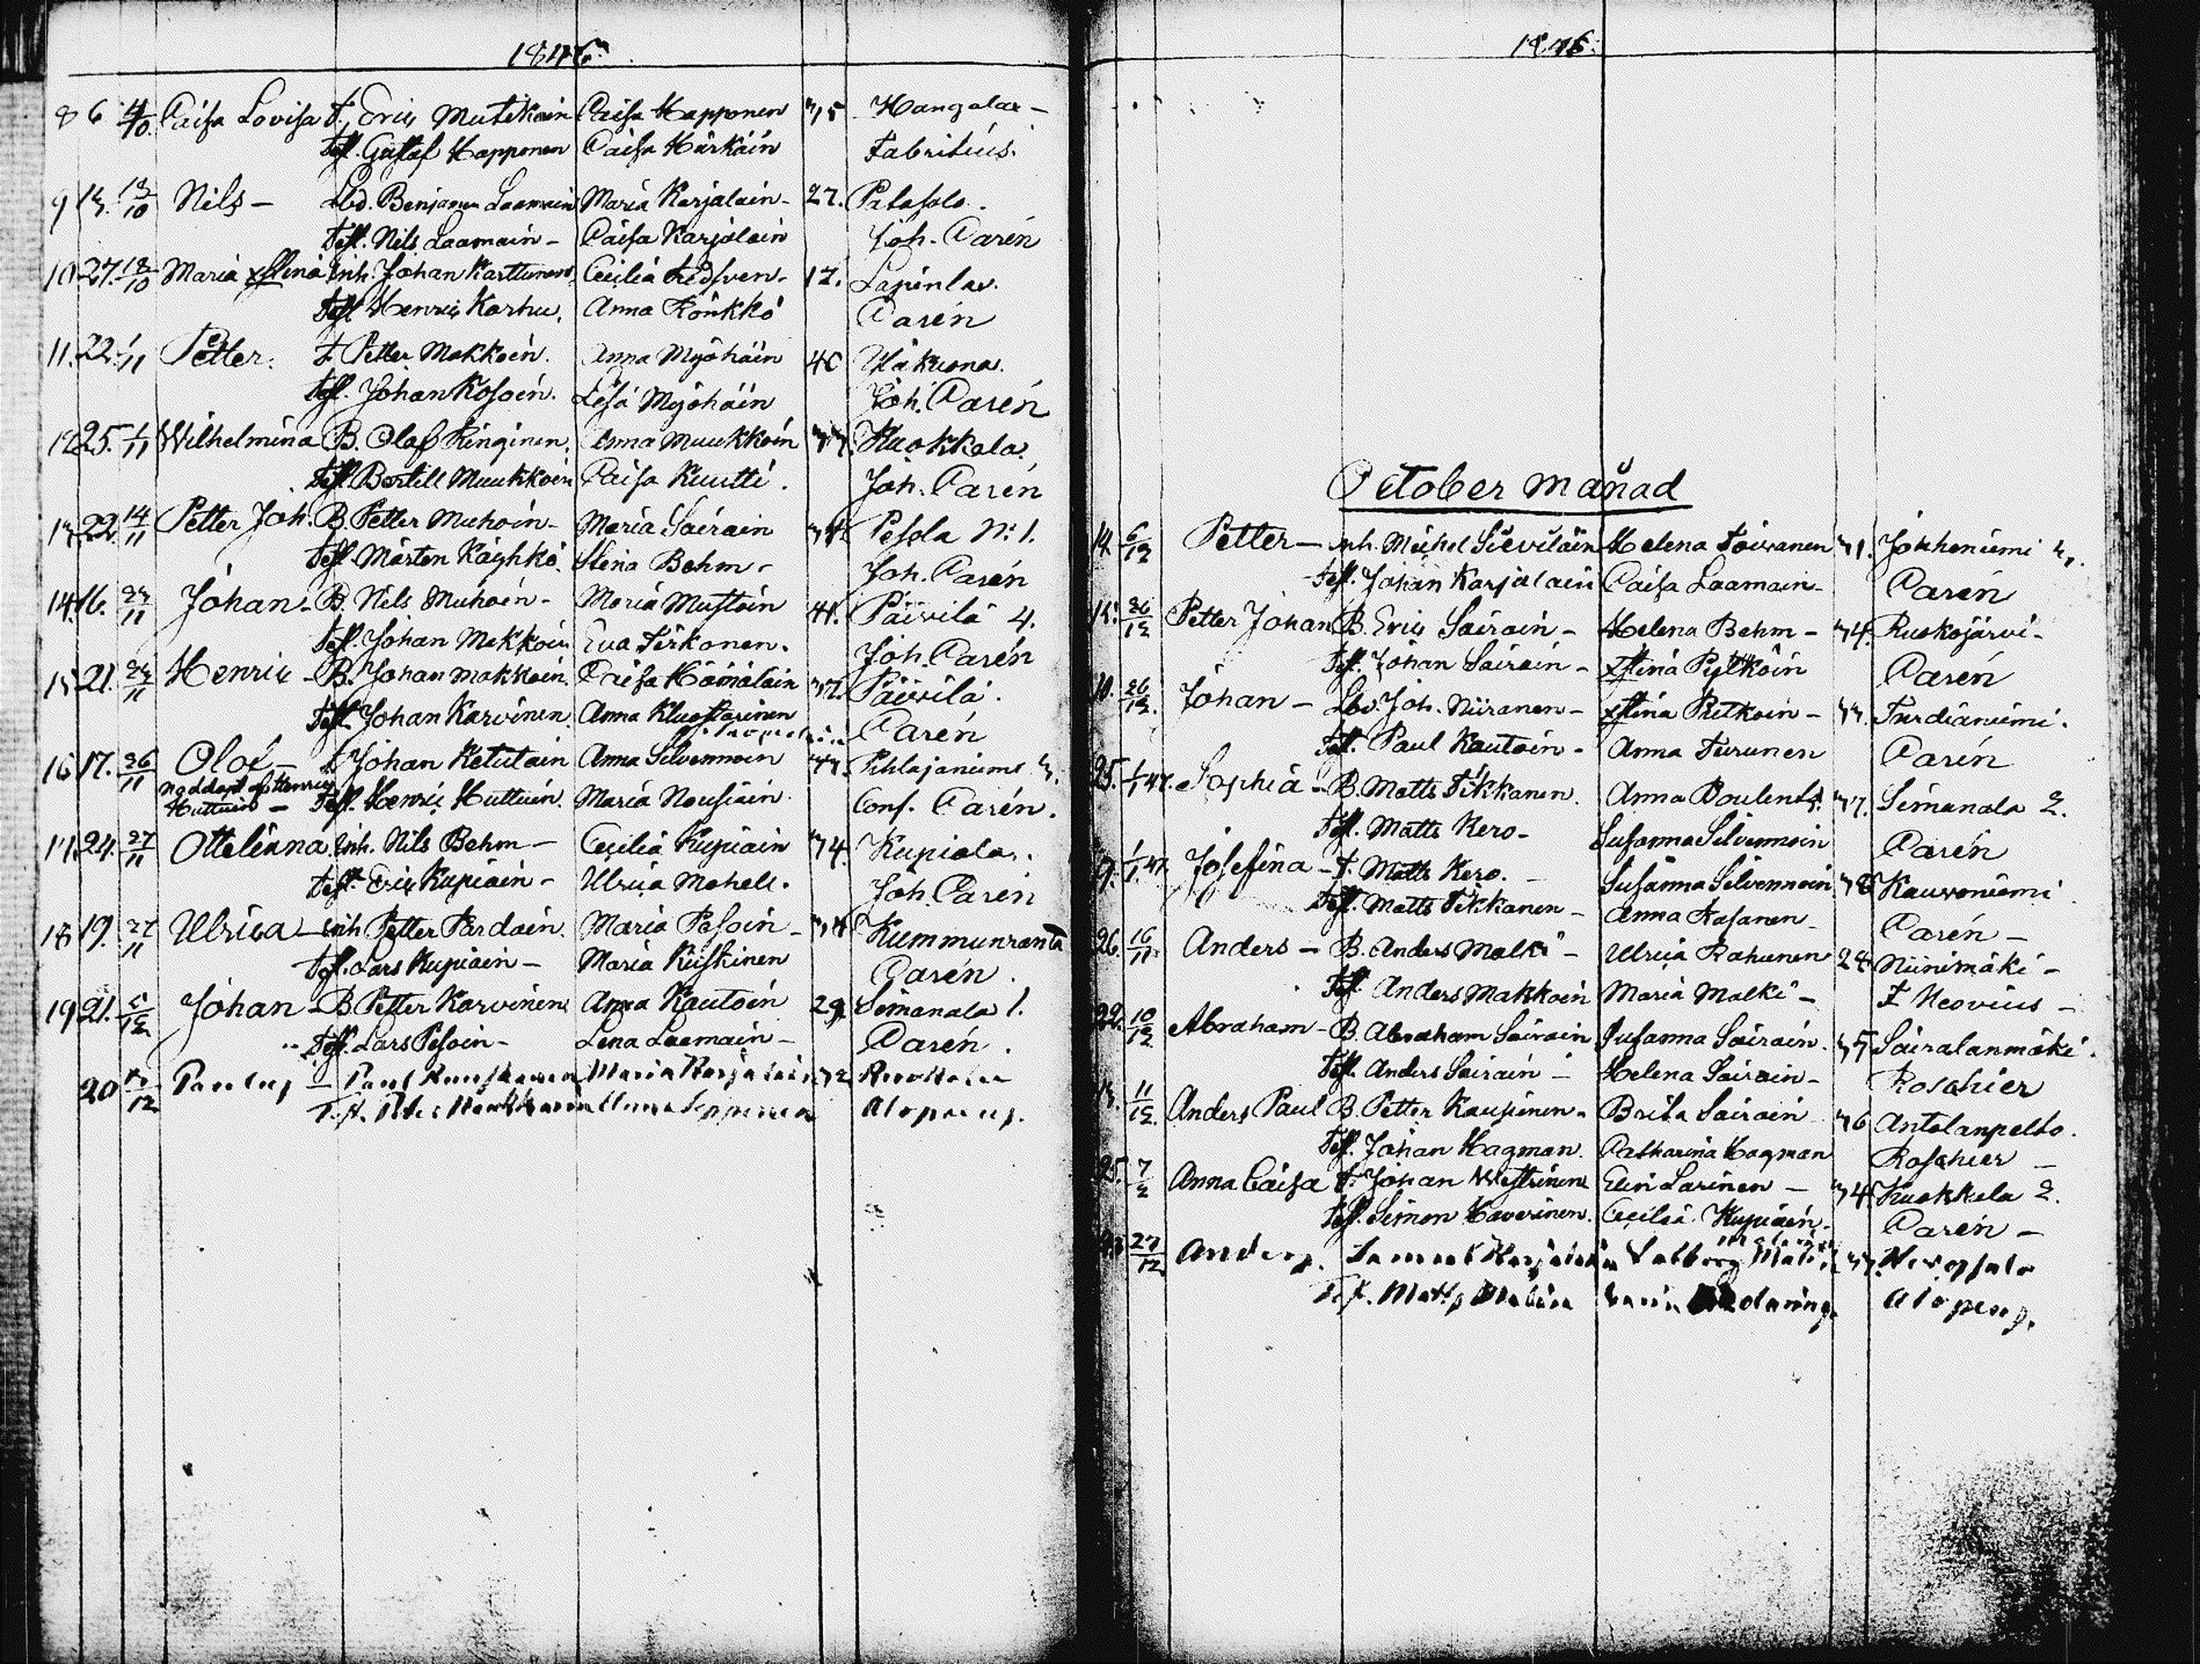 1846.
8 6 4/10. Caisa Lovisa T. Eric Mutikain Caisa Happonen 35 Hangalax -
Test. Gustaf Happonen Caisa Härkäin Fabritius.
9 13. 18/10 Nils - Lbd. Benjamin Laamain Maria Karjalain - 27. Patasalo.
Test. Nils Laamain - Caisa Karjalain Joh. Carén
10 27. 18/10 Maria Stina Inh. Johan Karttunen Cecilia 17. Lapinlax.
Test. Henric Karhu. Anna Könkkö Carén
11. 22. 1/11 Petter. T. Petter Makkoin. Anna Myöhäin 40
Test. Johan Kosoin. Lisa Myöhäin Joh. Carén
12 25. 1/11 Wilhelmina B. Olof Ringinen. Anna Muukkoin 37. Kuokkala.
Test. Bertill Muukkoin Caisa Kuutti. Joh. Carén
13. 22. 14/11 Petter Joh. B. Petter Muhoin - Maria Sairain Pesola N: 1.
Test. Mårten Käyhkö. Stina Behm - Joh. Carén
14. 16. 23/11 Johan - B. Nils Muhoin - Maria Mustoin 41. Päivilä 4.
Test. Johan Makkoin Eva Tirkonen. Joh. Carén
15 21. 23/11 Henric - B. Johan Makkoin. Caisa Hämäläin 37. Päivilä.
Test. Johan Karvinen Anna Carén
16 17. 26/11 Olof - T. Johan Ketutain Anna Silvennoin 33. Pihlajaniemi 3.
nöddöpt af Henric Huttuin - Test. Henric Huttuin. Maria Nousiain Conf. Carén.
17. 24. 27/11 Otteliana. Inh. Nils Behm - Cecilia Kupiain 34. Kupiala.
Test. Eric Kupiain - Ulrica Mahell. Joh. Carén
18 19. 27/11 Ulrica - Inh. Petter Pardain. Maria Pesoin - Kummunranta
Test. Lars Kupiain - Maria Kiiskinen Carén.
19 21. 5/12 Johan - B. Petter Karvinen Anna Kautoin 29. Simanala 1.
Test. Lars Pesoin - Lena Laamain - Carén.
20 /12 Paulus - Paul Maria Karjalain 32
Test. Anna Seppänen Alopæus.
1846.
October månad
14. 6/12 Petter - Inh. Michel Siöviläin Helena Toivanen 31. Jouheniemi 3.
Test. Johan Karjalain Caisa Laamain - Carén
15. 26/12 Petter Johan B. Eric Sairain - Helena Behm - 34. Ruokojärvi -
Test. Johan Sairain - Stina Pylköin Carén
10. 26/12. Johan - Lbv. Joh. Niiranen - Stina Putkoin - 33. Turdianiemi.
Test. Paul Kautoin - Anna Turunen Carén
25. 1/1 47. Sophia - B. Matts Tikkanen. Anna 37. Simanala 2.
Test. Matts Kero - Susanna Silvennoin Carén
9. 1/1 47. Josefina - T. Matts Kero. - Susanna Silvennoin 38 Kauvoniemi
Test. Matts Tikkanen - Anna Aasanen - Carén -
26. 16/11. Anders - B. Anders Malki - Ulrica Rahunen 28. Niinimäki -
Test. Anders Makkoin Maria Malki - F. Neovius -
22. 10/12 Abraham - B. Abraham Sairain Susanna Sairain. 35 Sairalanmäki.
Test. Anders Sairain - Helena Sairain - Roschier
13. 11/12. Anders Paul B. Petter Kaupinen - Brita Sairain 36 Antolanpelto.
Test. Johan Hagman. Catharina Hagman Roschier -
25. 7/2 Anna Caisa T. Johan Westrinen Elin Larinen - 34. Kuokkala 2.
Test. Simon Haverinen. Cecilia Kupiain. Carén -
27/12 Anders. Samuel Karjalain 37.
Test. Matts Alopæus.